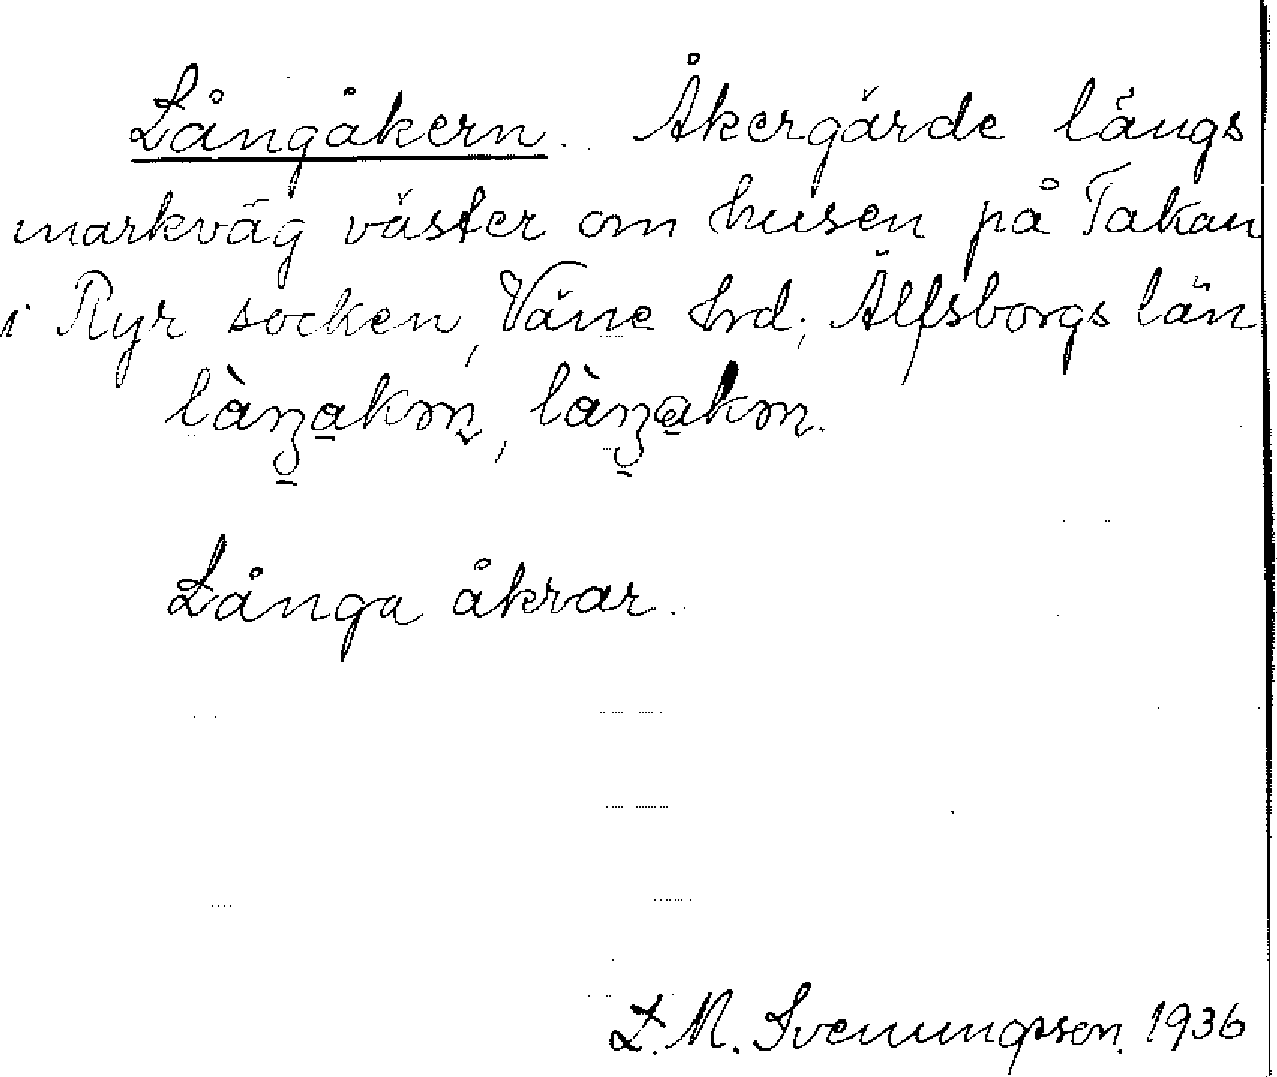 Långåkern. Åkergärde längs
markväg väster om husen på Takan
i Ryr socken, Väne hrd, Älfsborgs län
Långa åkrar.
L. M. Svenungsson. 1936